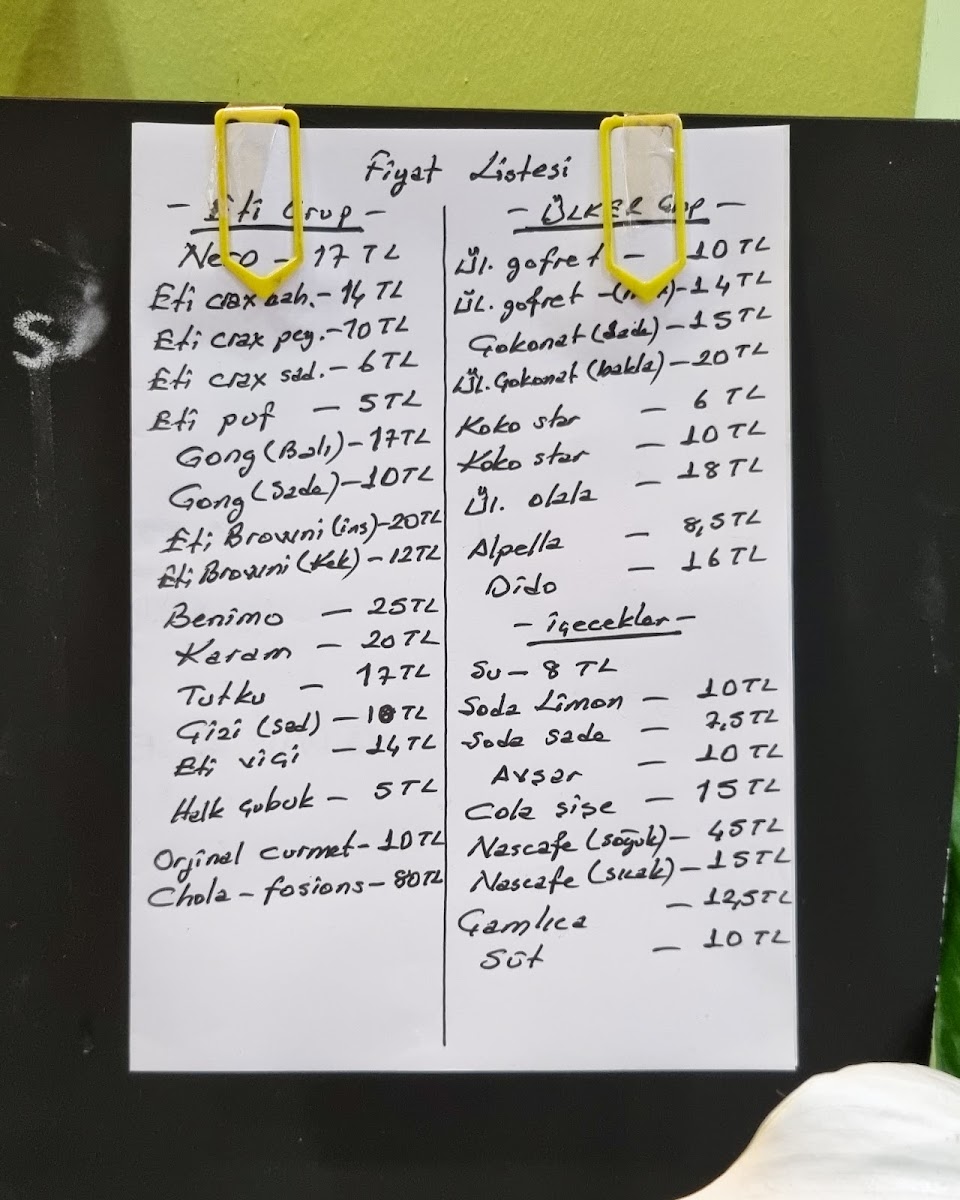 Fiyat Listesi
- Eti Grup -
Nero - 17 TL
Eti crax bah. - 14 TL
Eti crax pey. - 10 TL
Eti crax sad. - 6 TL
Eti puf - 5 TL
Gong (Balı) - 17 TL
Gong (Sade) - 10 TL
Eti Browni (ins) - 20 TL
Eti Browni (Kek) - 12 TL
Benimo - 25 TL
Karam - 20 TL
Tutku - 17 TL
Gizi (sad) - 10 TL
Eti viçi - 14 TL
Halk çubuk - 5 TL
Orjinal curmet - 10 TL
Chola - fosions - 80 TL
- ÜLKER Grp -
Ül. gofret - 10 TL
Ül. gofret - 14 TL
Çokonat (sade) - 15 TL
Ül. Çokonat (bakla) - 20 TL
Koko star - 6 TL
Koko star - 10 TL
Ül. olala - 18 TL
Alpella - 8,5 TL
Dido - 16 TL
- içecekler -
Su - 8 TL
Soda Limon - 10 TL
Soda sade - 7,5 TL
Avşar - 10 TL
Cola şişe - 15 TL
Nascafe (soğuk) - 45 TL
Nascafe (sıcak) - 15 TL
Çamlıca - 12,5 TL
Süt - 10 TL
S